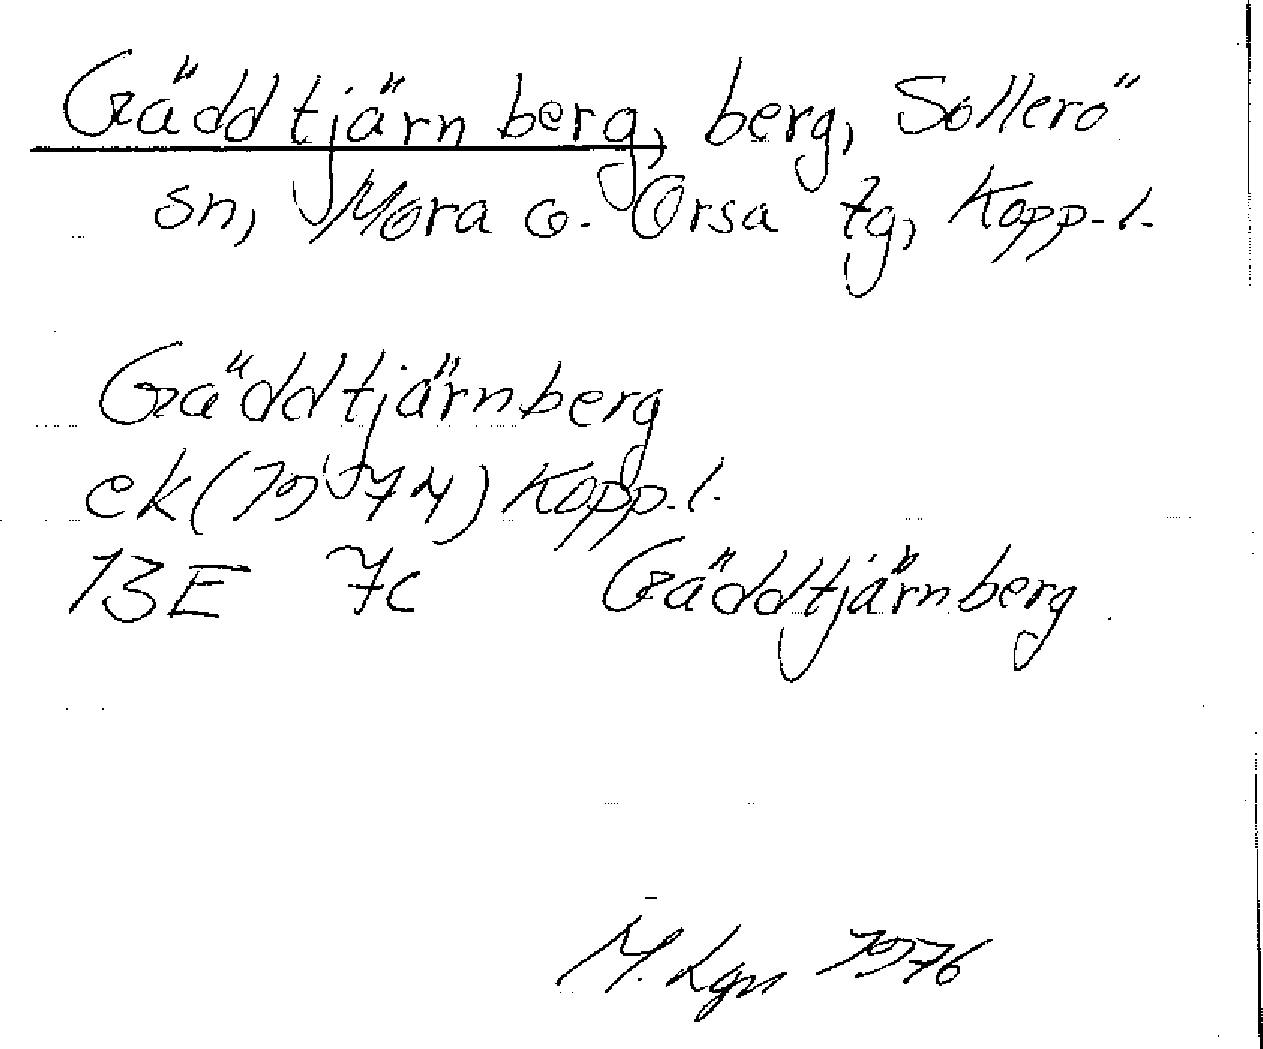 Gäddtjärnberg, berg, Sollerö
sn, Mora o. Orsa tg, Kopp. l.
Gäddtjärnberg
ek (1974) Kopp. l.
13E 7c Gäddtjärnberg
M. Lgn 1976